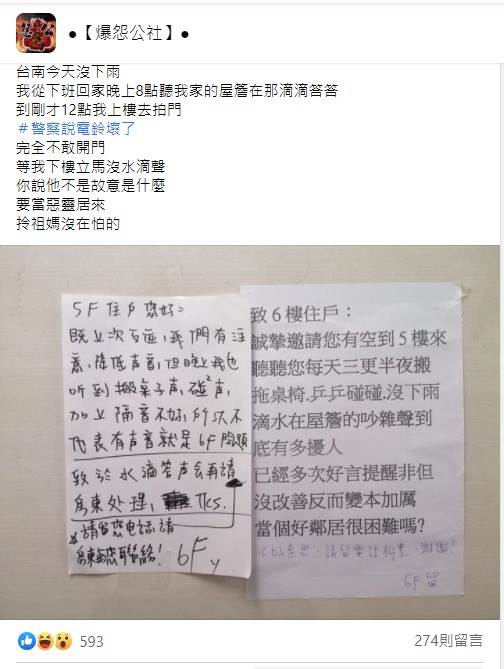 ●【爆怨公社】●
台南今天沒下雨
我從下班回家晚上8點聽我家的屋簷在那滴滴答答
到剛才12點我上樓去拍門
＃警察說電鈴壞了
完全不敢開門
等我下樓立馬沒水滴聲
你說他不是故意是什麼
要當惡靈居來
拎祖媽沒在怕的
5F住戶您好:
既上次反應,我們有注
意,降低声音,但晚上我也
听到搬桌子声,碰²声,
加上隔音不好,所以不
代表有声音就是6F問題
致於水滴答声会再請
房東处理, Tks.
*請留您电話,請
房東與您聯絡!
6F
致6樓住戶：
誠摯邀請您有空到5樓來
聽聽您每天三更半夜搬
拖桌椅.乒乒碰碰.沒下雨
滴水在屋簷的吵雜聲到
底有多擾人
已經多次好言提醒非但
沒改善反而變本加厲
當個好鄰居很困難嗎?
不好意思,請留電話,謝謝!
6F 留
593
274則留言